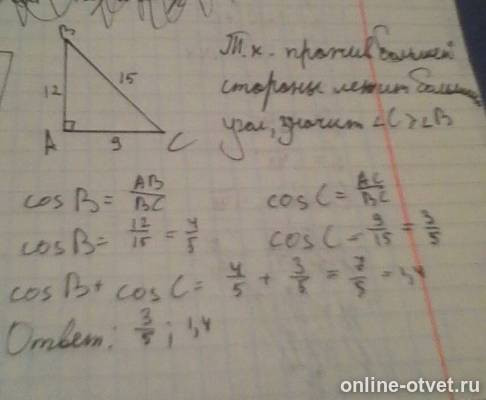 B
Т.к. против большей
12
15
стороны лежит больший
A
9
C
угол, значит ∠C > ∠B
cos B = AB/BC
cos C = AC/BC
cos B = 12/15 = 4/5
cos C = 9/15 = 3/5
cos B + cos C = 4/5 + 3/5 = 7/5 = 1,4
Ответ: 3/5 ; 1,4
online-otvet.ru